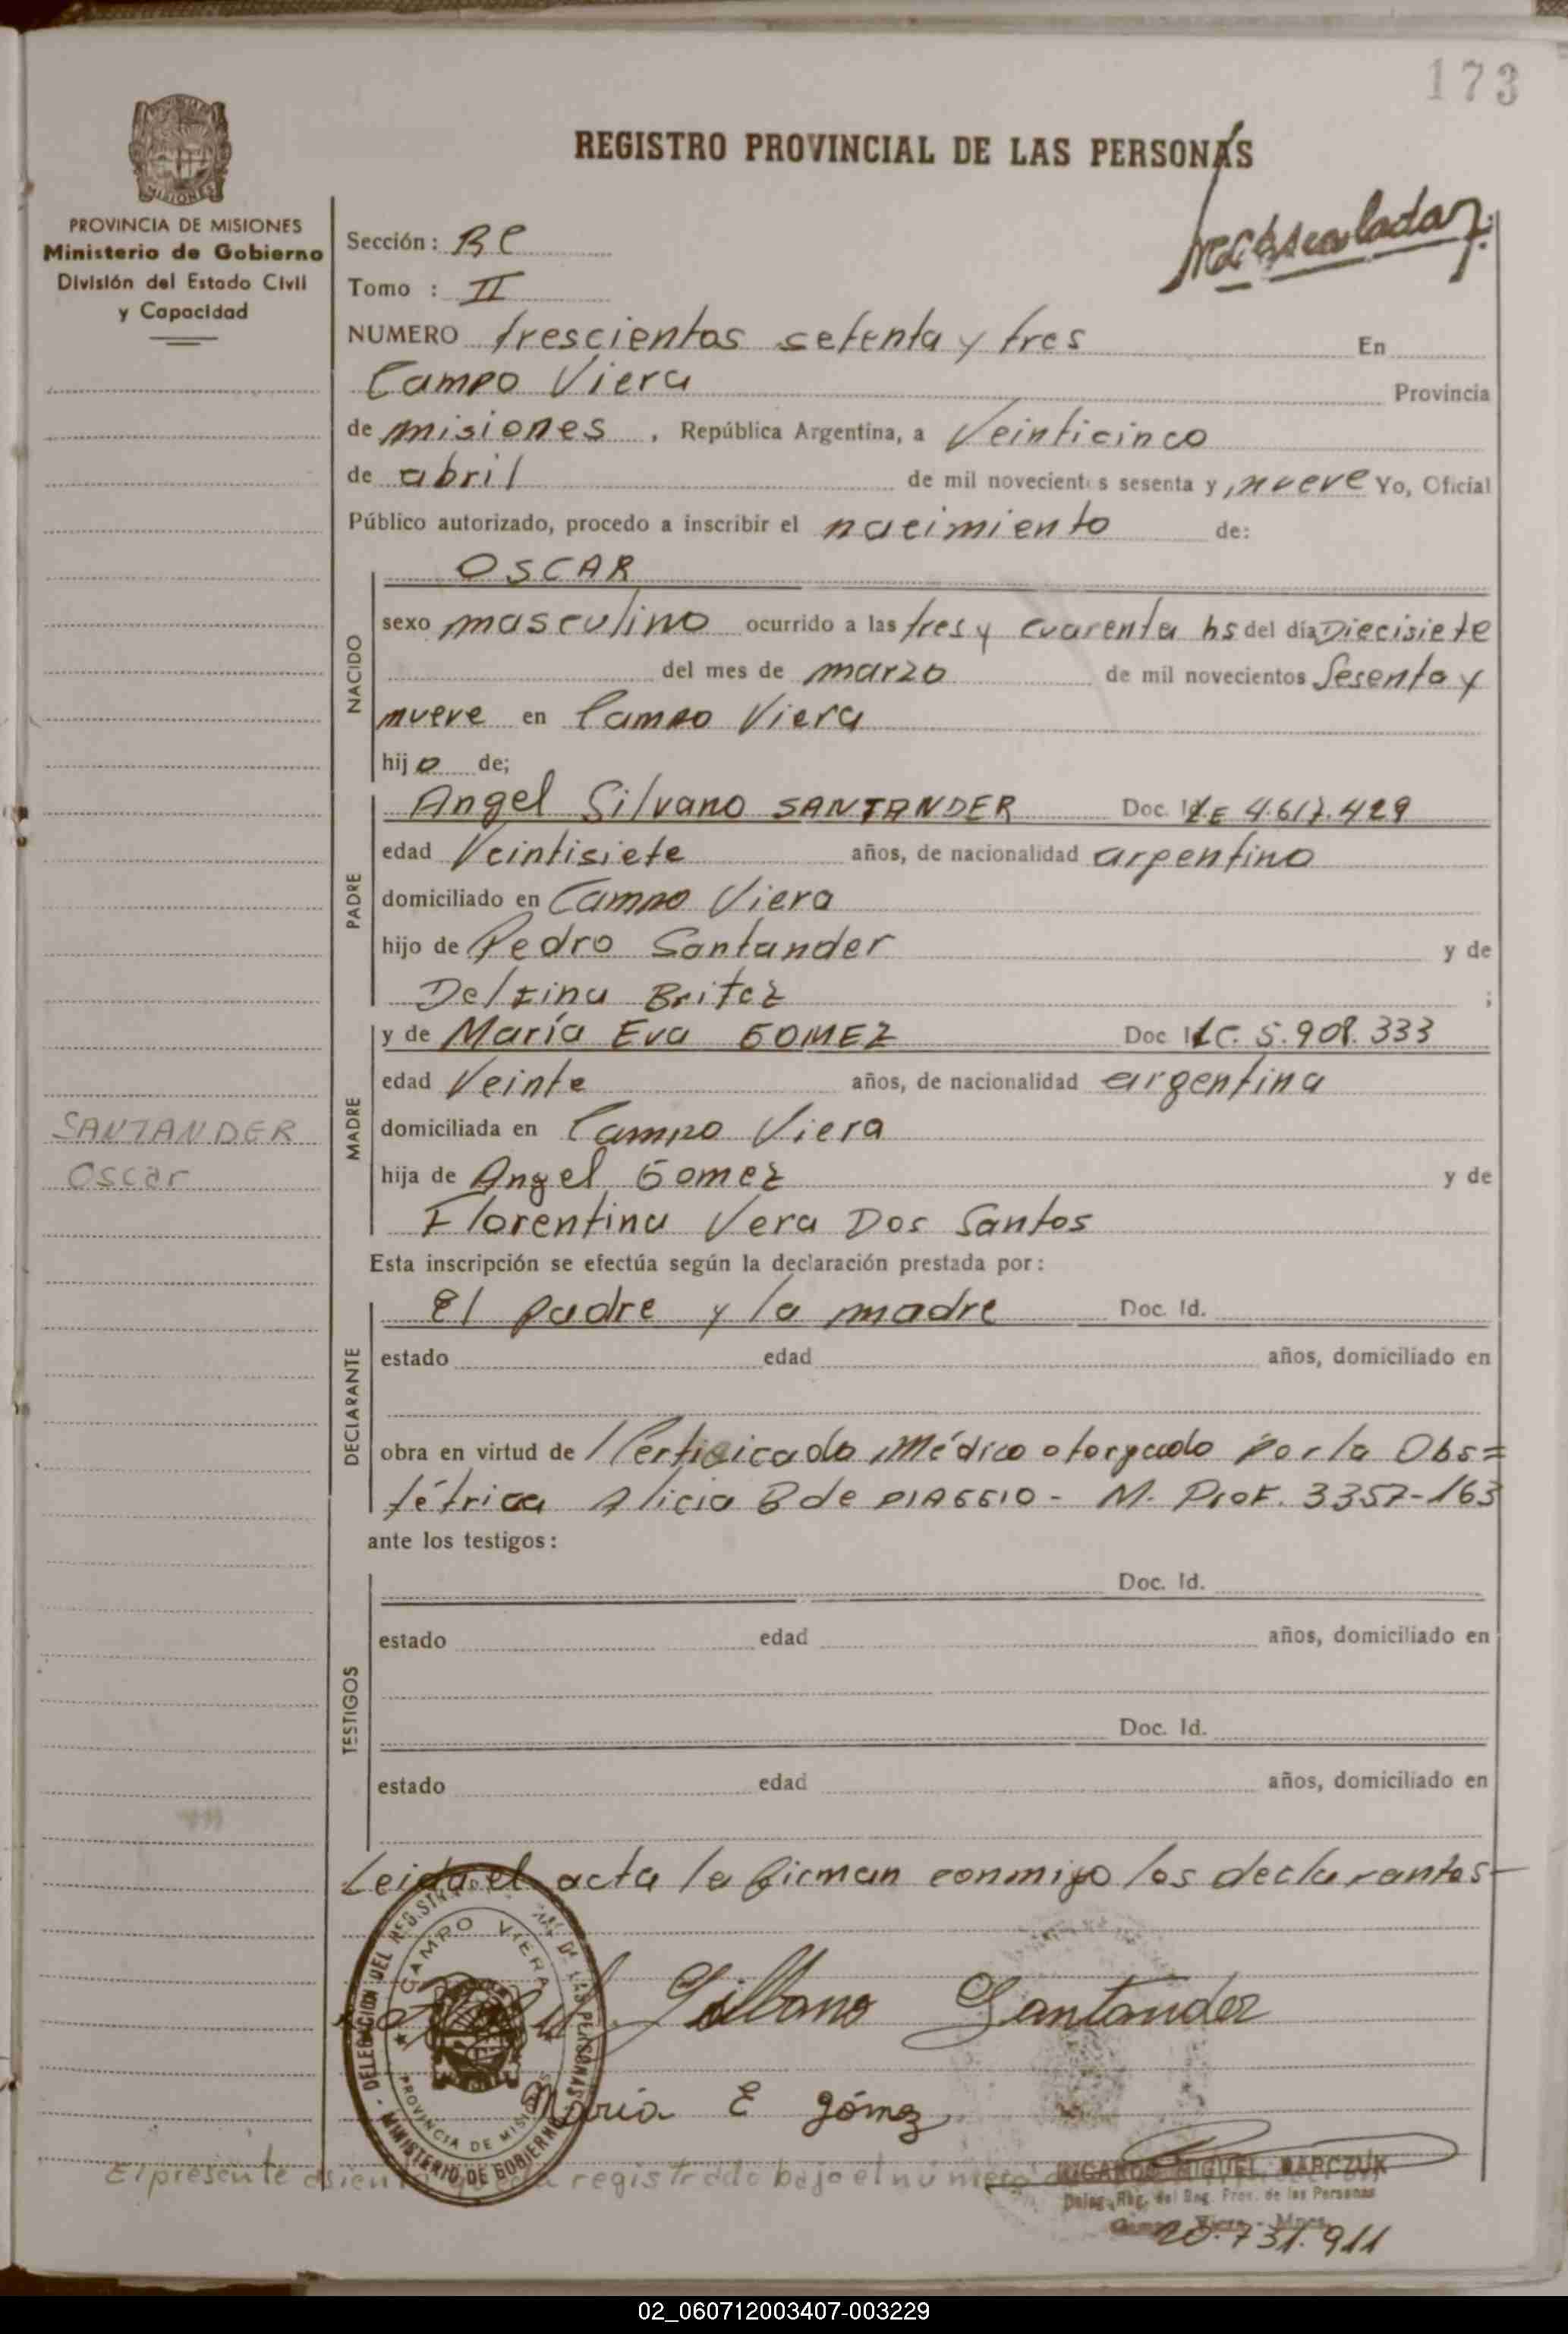 173
REGISTRO PROVINCIAL DE LAS PERSONAS
MISIONES
PROVINCIA DE MISIONES
Ministerio de Gobierno
División del Estado Civil
y Capacidad
Sección: BC
Tomo : II
NUMERO trescientos setenta y tres En
Campo Viera Provincia
de misiones, República Argentina, a Veinticinco
de abril de mil novecientos sesenta y nueve Yo, Oficial
Público autorizado, procedo a inscribir el nacimiento de:
OSCAR
NACIDO
sexo masculino ocurrido a las tres y cuarenta hs del día Diecisiete
del mes de marzo de mil novecientos Sesenta y
nueve en Campo Viera
hijo de;
PADRE
Angel Silvano SANTANDER Doc. Id L.E 4.617.429
edad Veintisiete años, de nacionalidad argentino
domiciliado en Campo Viera
hijo de Pedro Santander y de
Delfina Britez ;
MADRE
y de María Eva GOMEZ Doc I LC. 5.908.333
edad Veinte años, de nacionalidad argentina
domiciliada en Campo Viera
hija de Angel Gomez y de
Florentina Vera Dos Santos
SANTANDER
Oscar
Esta inscripción se efectúa según la declaración prestada por:
DECLARANTE
El padre y la madre Doc. Id.
estado edad años, domiciliado en
obra en virtud de Certificado Médico otorgado por la Obs=
tétrica Alicia B de PIAGGIO - M. Prof. 3357-163
ante los testigos:
TESTIGOS
Doc. Id.
estado edad años, domiciliado en
Doc. Id.
estado edad años, domiciliado en
Leida el acta la firman conmigo los declarantes-
DELEGACION DEL REG. DE LAS PERSONAS
CAMPO VIERA
PROVINCIA DE MISIONES
MINISTERIO DE GOBIERNO
Silbano Santander
María E gómez
El presente asiento registrado bajo el número
RICARDO MIGUEL BARCZUK
Deleg. Reg. del Reg. Prov. de las Personas
Campo Viera - Mnes.
20.731.911
02_060712003407-003229